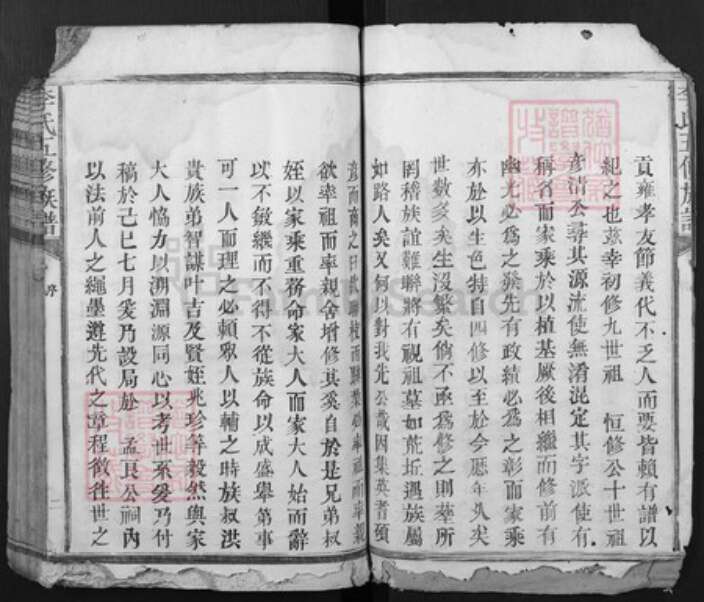 貢雍孝友節義代不乏人而要皆賴有譜以
紀之也茲幸初修九世祖 恒修公十世祖
彥清公尋其源流使無淆混定其字派使有
稱名而家乘於以植基厥後相繼而修前有
幽光必為之發先有政績必為之彰而家乘
亦於以生色特自四修以至於今歷年久矣
世數多矣生沒繁矣倘不亟為修之則塋所
罔稽族誼難聯將有視祖墓如荒坵遇族屬
如路人矣又何以對我先公哉因集英耆碩
彥而商之曰欲聯枝而
欲率祖而率親舍增修其奚自於是兄弟叔
姪以家乘重務命家大人而家大人始而辭
以不敏繼而不得不從族命以成盛舉第事
可一人而理之必賴眾人以輔之時族叔洪
貴族弟智謀叶吉及賢姪兆珍等毅然與家
大人恊力以溯淵源同心以考世系爰乃付
稿於己巳七月爰乃設局於 孟良公祠內
以法前人之繩墨遵先代之章程徵往世之
李氏五修族譜
序
李氏五修族譜